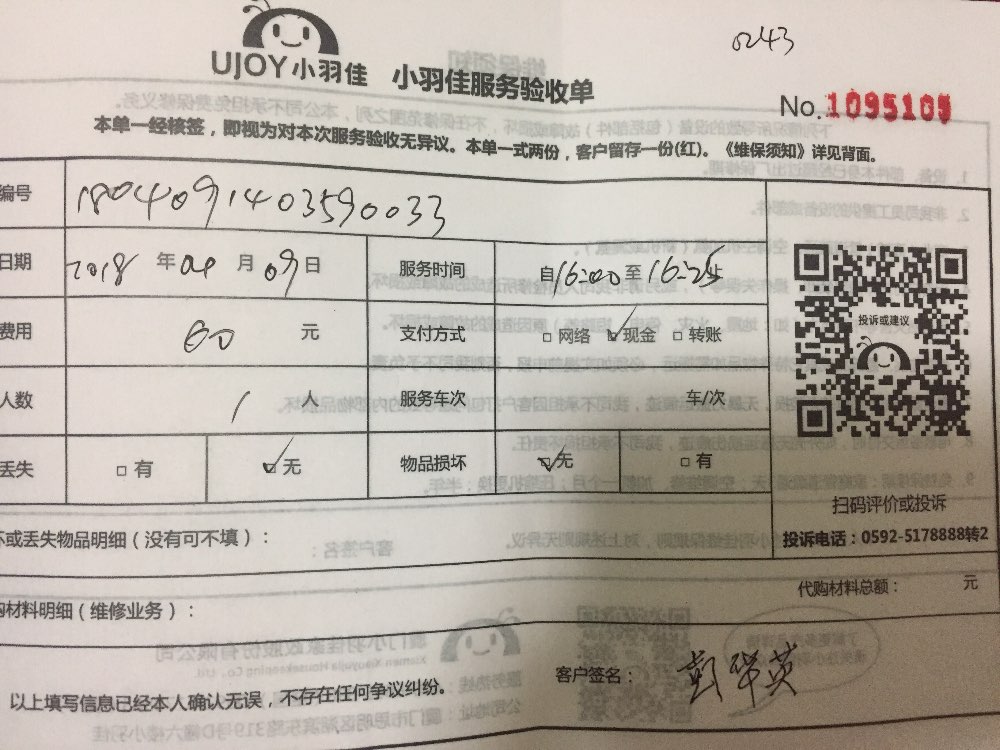 0243
UJOY小羽佳 小羽佳服务验收单
No.1095105
本单一经核签，即视为对本次服务验收无异议。本单一式两份，客户留存一份(红)。《维保须知》详见背面。
编号 1804091403590033
日期 2018 年 04 月 09 日 服务时间 自16:00至16:25止
费用 60 元 支付方式 □网络 ☑现金 □转账
人数 1 人 服务车次 车/次
丢失 □有 ☑无 物品损坏 ☑无 □有
投诉或建议
扫码评价或投诉
投诉电话：0592-5178888转2
坏或丢失物品明细（没有可不填）：
代购材料总额： 元
购材料明细（维修业务）：
以上填写信息已经本人确认无误，不存在任何争议纠纷。
客户签名：